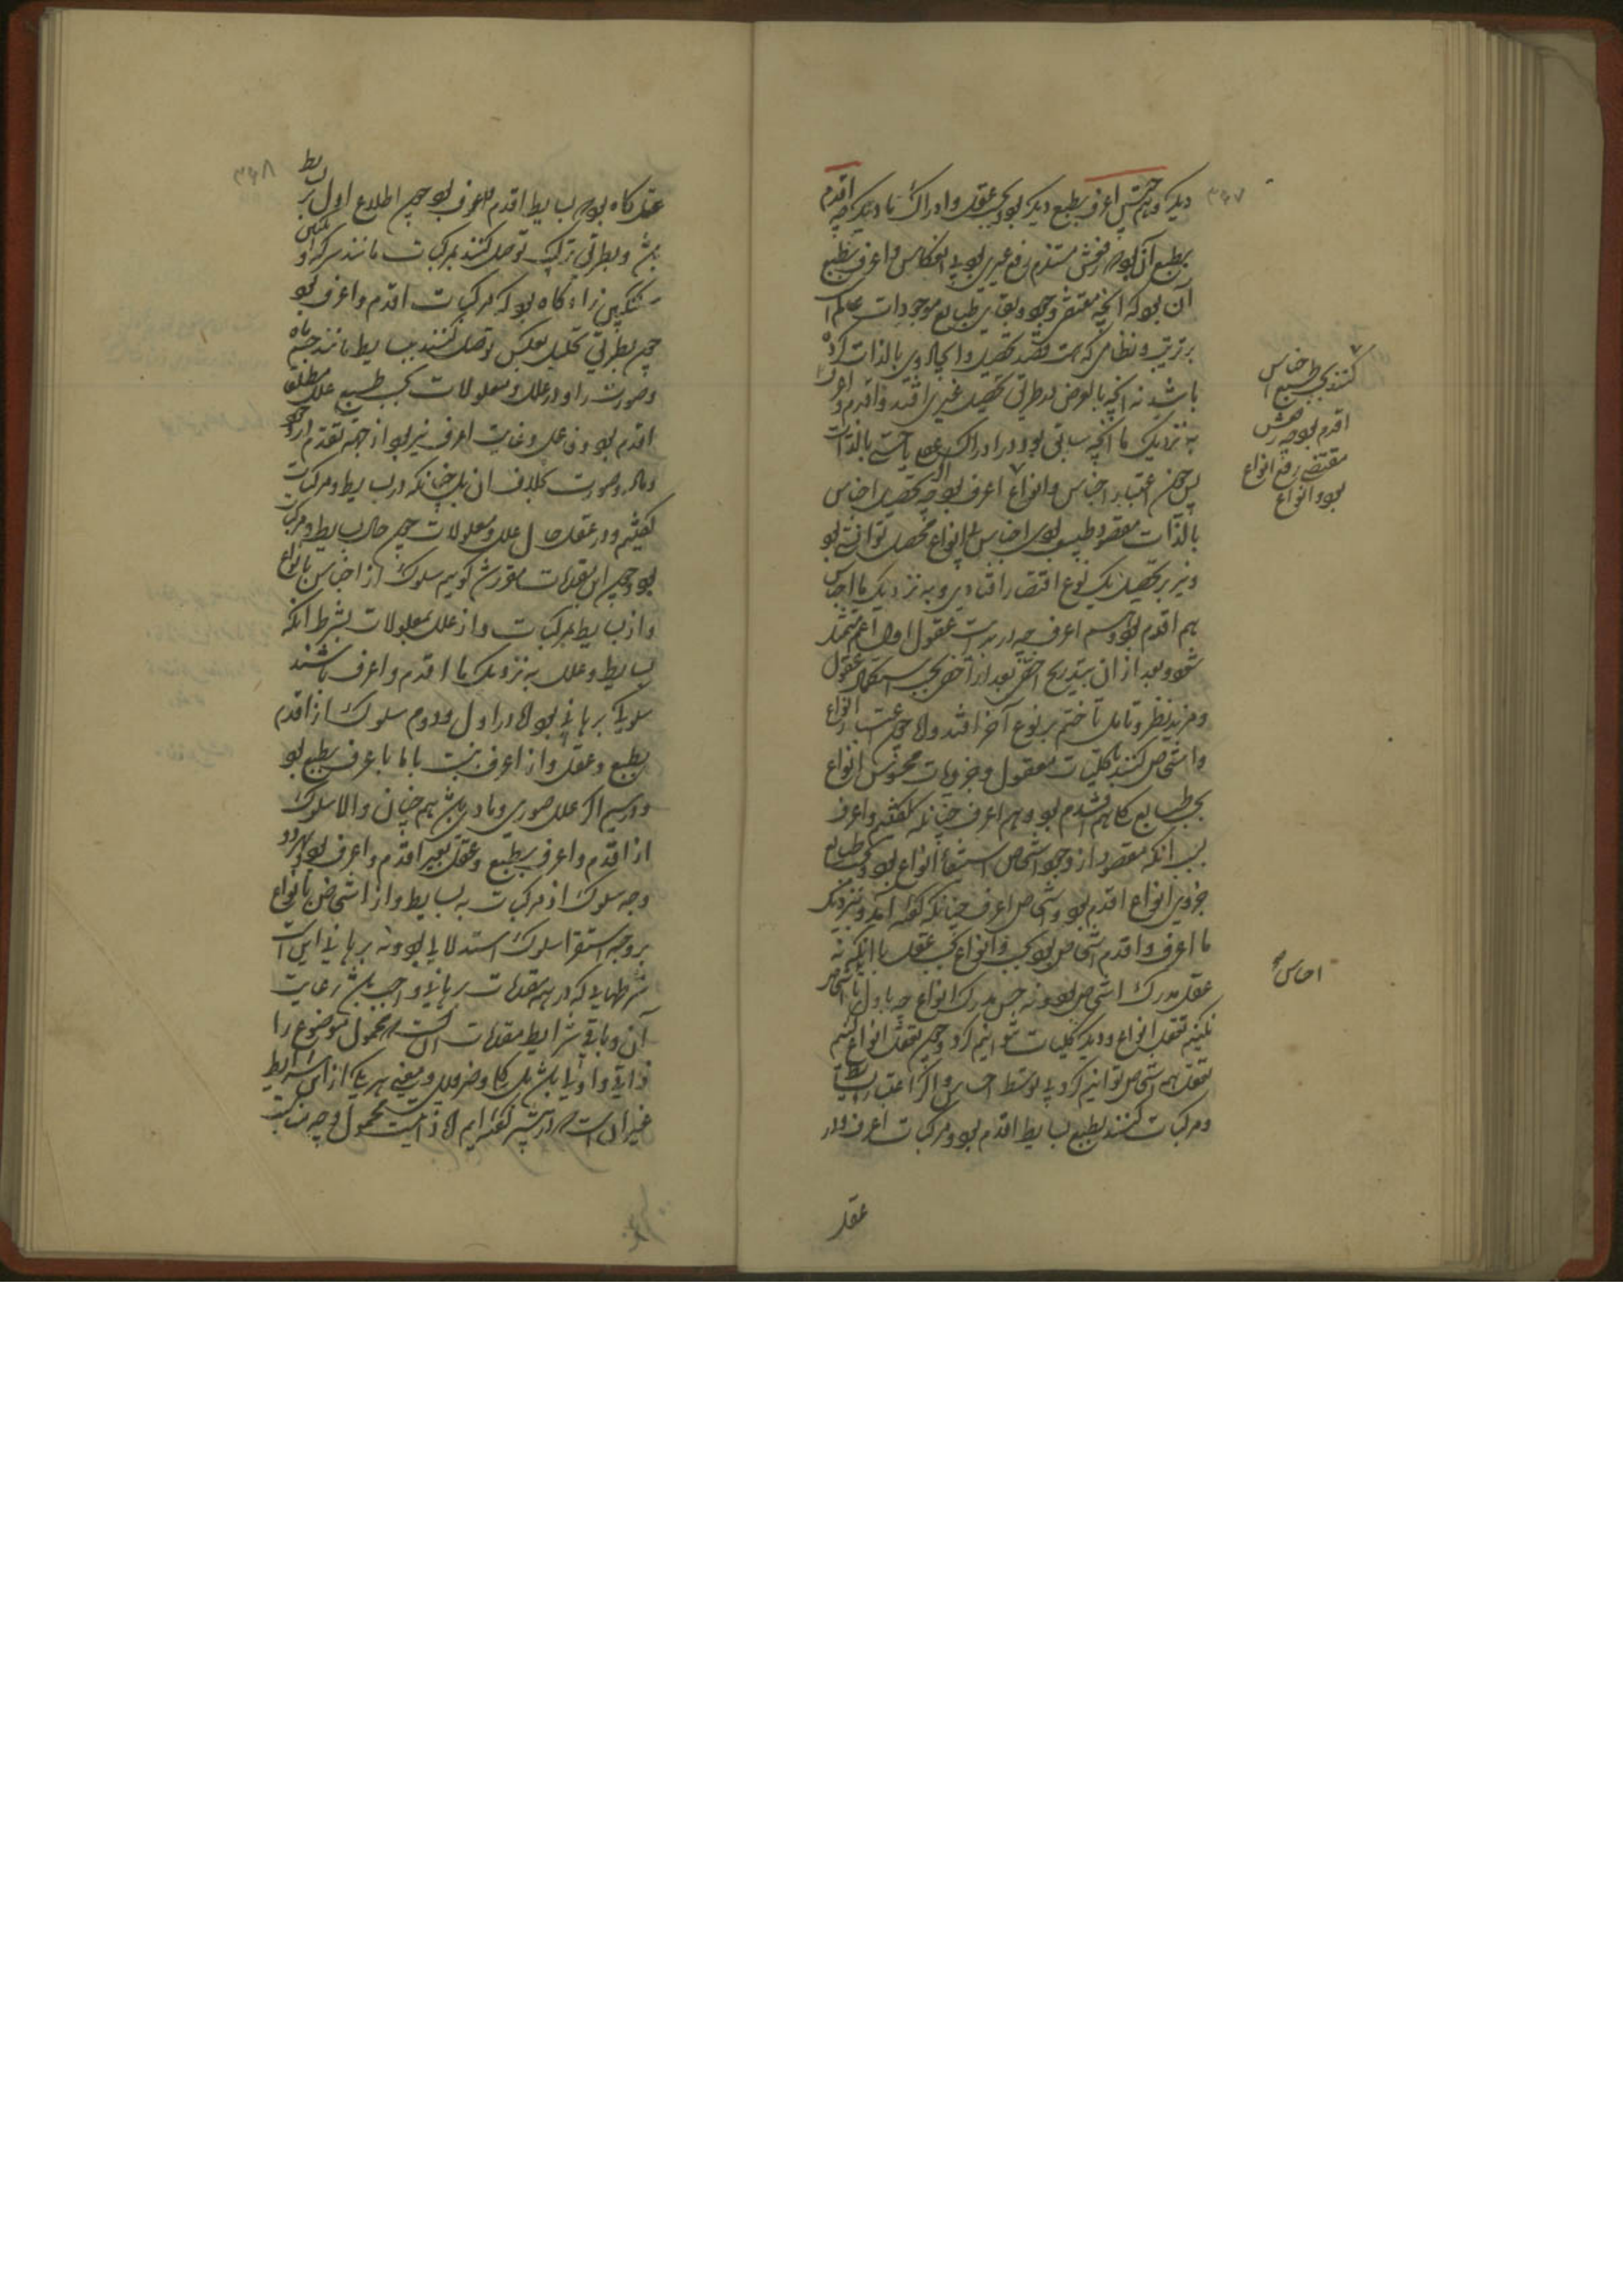 دیکر و همچنین اعرف بطبع دیکر بود و بحسب عقل و ادراک ما دیکر چه اقدم
بطبع آن بود که رفعش مستلزم رفع غیری بود بی انعکاس و اعرف بطبع
آن بود که آنچه مقتضی وجود و بقای طبایع موجودات عالم است
بر ترتیب و نظامی که هست قصد تحصیل و ایجاد وی بالذات کرده
باشد نه آنچه بالعرض در طریق تحصیل غیری افتد و اقدم و اعرف
به نزدیک ما آنچه سابق بود در ادراک عقلی یا حسی بالذات
پس چون اعتبار اجناس و انواع اعرف بود چه تحصیل اجناس
بالذات مقصود طبیعت بودی اجناس بی انواع محصل توانستی بود
و نیز بر تحصیل یک نوع اقتصار افتادی و به نزدیک ما اجناس
هم اقدم بود و هم اعرف چه در بدایت عقول اول اعم متمثل
شود و بعد از آن بتدریج اخص بعد از اخص بحسب استکمال عقول
و مزید نظر و تامل تا ختم بر نوع آخر افتد و اما چون اعتبار انواع
و اشخاص کنند یا کلیات معقول و جزویات محسوس انواع
بحسب طبایع کلی هم اقدم بود و هم اعرف چنانکه گفتیم و اعرف
بسبب آنکه مقصود از وجود اشخاص استبقاء انواع بود و بحسب طبایع
جزوی انواع اقدم بود و شخاص اعرف چنانکه گفته آمد و بنزدیک
ما اعرف و اقدم اشخاص بود بحسب حس و انواع بحسب عقل با آنکه نه
عقل مدرک اشخاص بود و نه حس مدرک انواع چه تا اول احساس باشخاص
نکنیم تعقل انواع و دیکر کلیات نتوانیم کرد و چون تعقل انواع کنیم
تعقل هم اشخاص توانیم کرد بی توسط احساس و اگر اعتبار بسایط
و مرکبات کنند بطبع بسایط اقدم بود و مرکبات اعرف و در
عقل
کنند بحسب طبع اجناس
اقدم بود چه رفعش
مقتضی رفع انواع
بود و انواع
احساس صح
۳۴۷
۳۴۸
عقل گاه بود که بسایط اقدم و اعرف بود چون اطلاع اول بر بسایط
باشد و بطریق ترکیب توصل کنند بمرکبات مانند سرکه و انگبین
سکنگبین را و گاه بود که مرکبات اقدم و اعرف بود
چون بطریق تحلیل بعکس توصل کنند ببسایط مانند جسم ماده
و صورت را و در علل و معلولات بحسب طبع علل مطلقا
اقدم بود و فاعل و غایت اعرف نیز بود از جهت تقدم در وجود
و ماده و صورت بخلاف آن باشد چنانکه در بسایط و مرکبات
گفتیم و در عقل حال علل و معلولات چون حال بسایط و مرکبات
بود و چون این مقدمات مقرر شد گوییم سلوک از اجناس بانواع
و از بسایط بمرکبات و از علل بمعلولات بشرط آنکه
بسایط و علل به نزدیک ما اقدم و اعرف باشند
سلوکی برهانی بود اما در اول و دوم سلوک از اقدم
بطبع و عقل و از اعرف بنسبت با ما با اعرف بطبع بود
و در سیم اگر علل صوری و مادی باشد هم چنان و الا سلوک
از اقدم و اعرف بطبع و عقل بغیر اقدم و اعرف بود بهر دو
وجه سلوک از مرکبات به بسایط و از اشخاص بانواع
بر وجه استقرا سلوک استدلالی بود و نه برهانی این است
شرطهایی که در همه مقدمات برهانی واجب باشد رعایت
آن و باقی شرایط مقدمات آنست که محمول موضوع را
ذاتی و اولی باشد یا کلی و ضروری و معنی هر یکی از این شرایط
غیر آن است که در پیشتر گفته‌ایم اما ذاتیت محمول وجه مناسبت